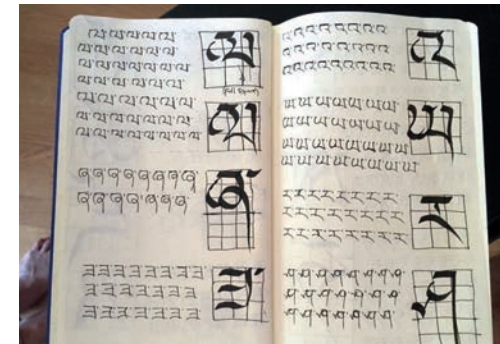 ལ་ལ་ལ་ལ་ལ་
ལ་ལ་ལ་ལ་ལ་ལ་
ལ་ལ་ལ་ལ་ལ་ལ་
ལ་ལ་ལ་ལ་ལ་ལ་
ལ
(full square)
ལ་ལ་ལ་ལ་ལ་ལ་
ལ་ལ་ལ་ལ་ལ་ལ་
ལ་ལ་ལ་ལ་ལ་ལ་
ལ
ཞ་ཞ་ཞ་ཞ་ཞ་ཞ་ཞ་ཞ་
ཞ་ཞ་ཞ་ཞ་ཞ་ཞ་ཞ་
ཞ་
ཟ་ཟ་ཟ་ཟ་ཟ་ཟ་ཟ་ཟ་
ཟ་ཟ་ཟ་ཟ་ཟ་ཟ་ཟ་
ཟ་ཟ་ཟ་ཟ་ཟ་ཟ་ཟ་
ཟ་
འ་འ་འ་འ་འ་འ་འ་འ་
འ་འ་འ་འ་འ་འ་འ་འ་
འ་འ་འ་འ་འ་འ་འ་འ་
འ
ཡ་ཡ་ཡ་ཡ་ཡ་ཡ་ཡ་
ཡ་ཡ་ཡ་ཡ་ཡ་ཡ་ཡ་
ཡ་ཡ་ཡ་ཡ་ཡ་ཡ་ཡ་ཡ་
ཡ་ཡ་ཡ་ཡ་ཡ་ཡ་ཡ་ཡ་
ཡ
ར་ར་ར་ར་ར་ར་ར་ར་
ར་ར་ར་ར་ར་ར་ར་ར་
ར་ར་ར་ར་ར་ར་ར་ར་
ར
ཤ་ཤ་ཤ་ཤ་ཤ་ཤ་ཤ་
ཤ་ཤ་ཤ་ཤ་ཤ་ཤ་ཤ་
ཤ་ཤ་ཤ་ཤ་ཤ་ཤ་ཤ་
ཤ